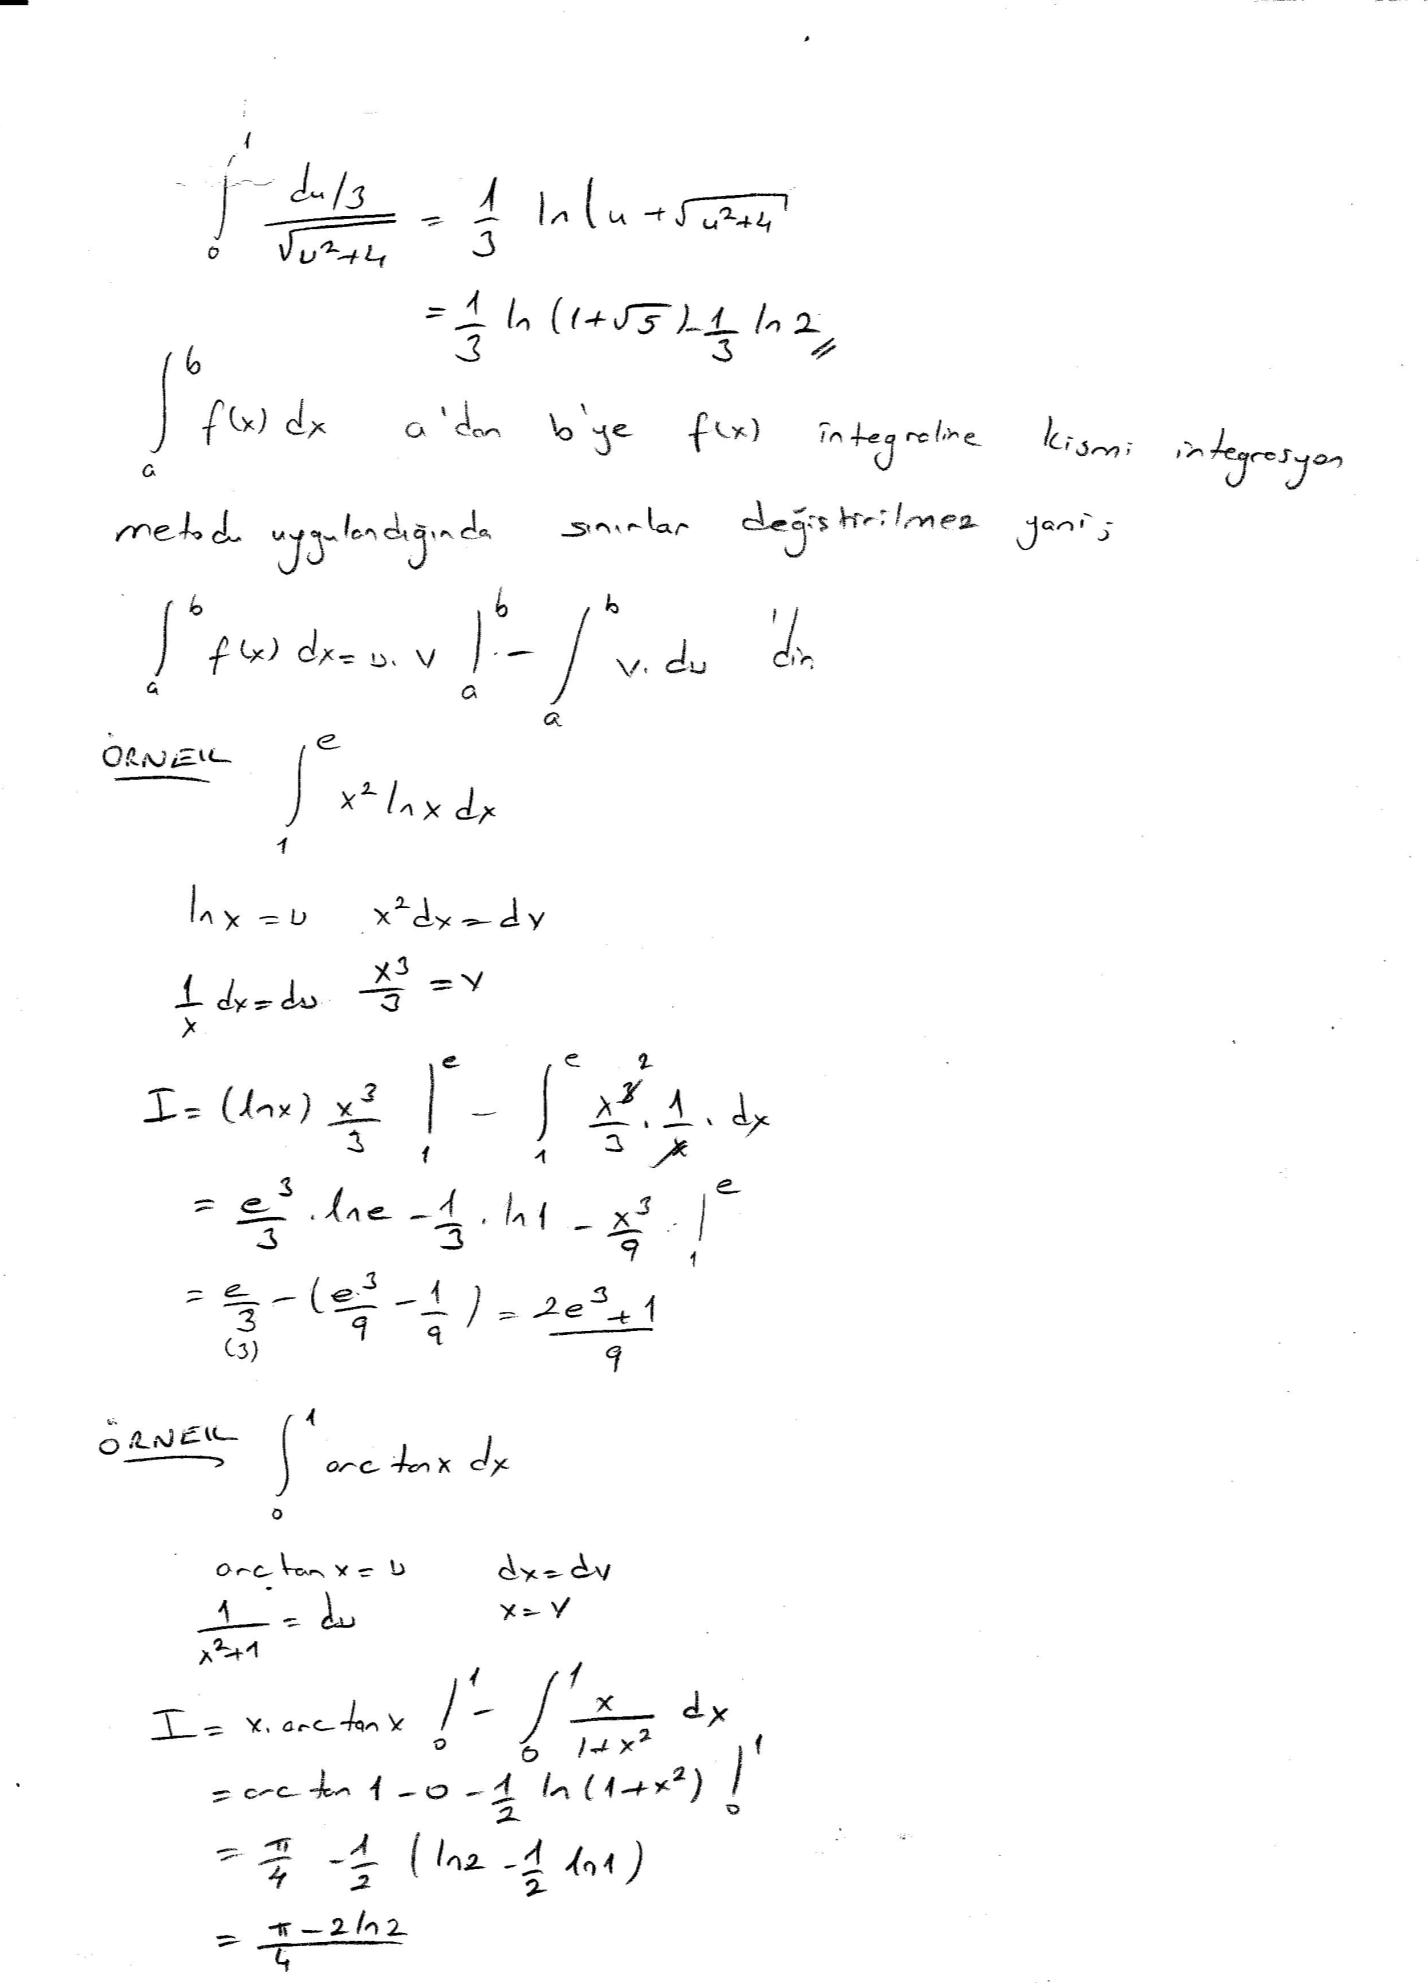 ∫₀¹ (du/3)/√(u²+4) = 1/3 ln(u+√(u²+4)
= 1/3 ln(1+√5) - 1/3 ln 2 //
∫ₐᵇ f(x) dx a'dan b'ye f(x) integraline kısmi integrasyon
metodu uygulandığında sınırlar değiştirilmez yani;
∫ₐᵇ f(x) dx = u.v |ₐᵇ - ∫ₐᵇ v.du 'dir
ÖRNEK ∫₁ᵉ x² lnx dx
lnx = u x²dx = dv
1/x dx = du x³/3 = v
I = (lnx) x³/3 |₁ᵉ - ∫₁ᵉ x²/3 . 1/x . dx
= e³/3 . lne - 1/3 . ln1 - x³/9 |₁ᵉ
= e/3 - (e³/9 - 1/9) = (2e³+1)/9
(3)
ÖRNEK ∫₀¹ arc tanx dx
arc tan x = u dx = dv
1/(x²+1) = du x = v
I = x. arc tan x |₀¹ - ∫₀¹ x/(1+x²) dx
= arc tan 1 - 0 - 1/2 ln(1+x²) |₀¹
= π/4 - 1/2 (ln2 - 1/2 ln1)
= (π - 2ln2)/4